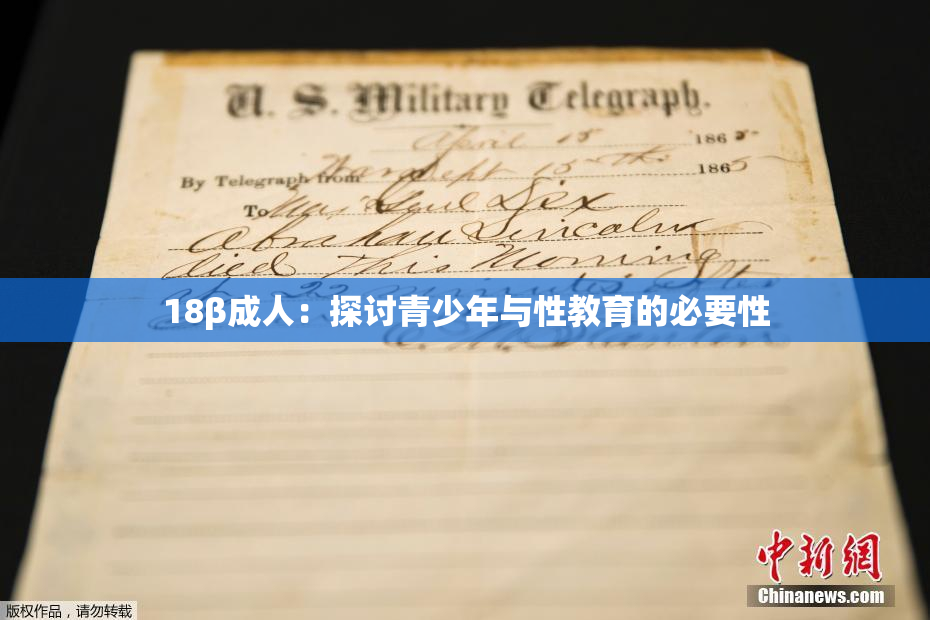 U. S. Military Telegraph.
April 15 1865
By Telegraph from War Dept 15th 1865
To Maj Genl Dix
Abraham Lincoln
died This Morning
at 22 minutes after
18β成人：探讨青少年与性教育的必要性
E. M. Stanton
中新網
Chinanews.com
版权作品，请勿转载